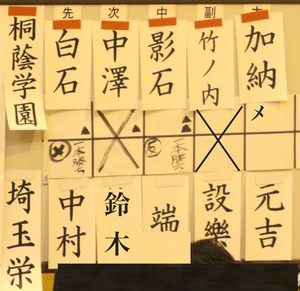 先 次 中 副 大
桐蔭学園 白石 中澤 影石 竹ノ内 加納
一本勝ち
メ
埼玉栄 中村 鈴木 端 設樂 元吉